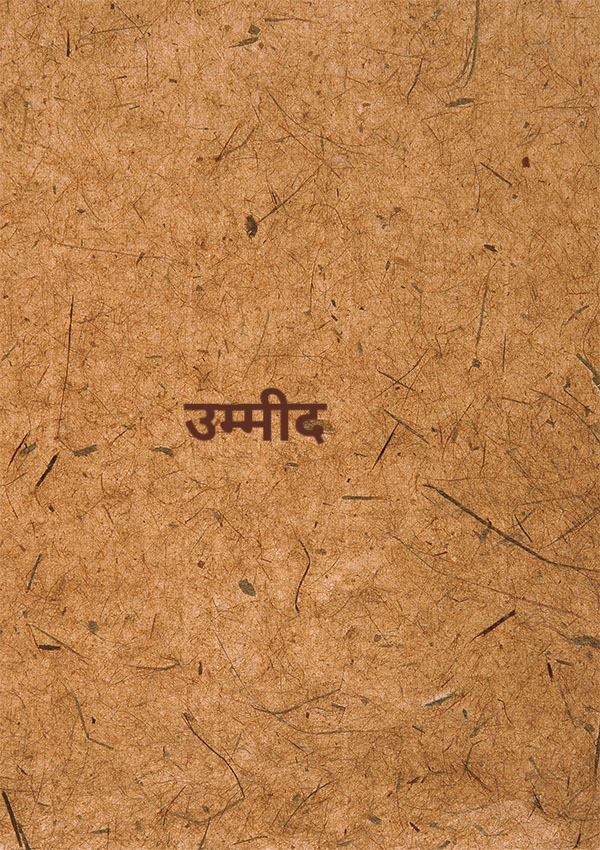 उम्मीद